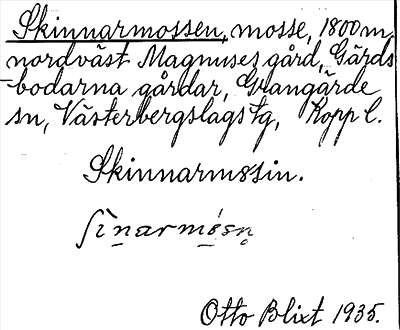 Skinnarmossen, mosse, 1800 m
nordväst Magnuses gård, Gärds-
bodarna gårdar, Grangärde
sn, Västerbergslags tg, Kopp l.
Skinnarmósin.
ʃìn̠armó̠sn̥
Otto Blixt 1935.